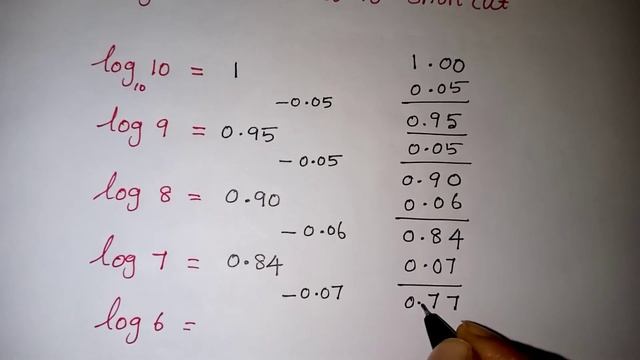 short cut
log₁₀ 10 = 1
-0.05
log 9 = 0.95
-0.05
log 8 = 0.90
-0.06
log 7 = 0.84
-0.07
log 6 =
1.00
0.05
0.95
0.05
0.90
0.06
0.84
0.07
0.77